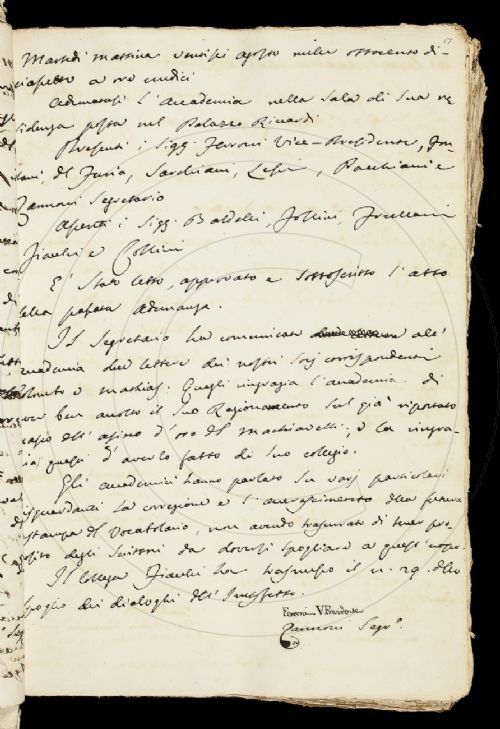 Martedì mattina ventisei agosto mille ottocento di-
ciasette a ore undici
Adunatasi l'Accademia nella Sala di Sua re-
sidenza posta nel Palazzo Ricardi
Presenti i Sigg. Ferroni Vice-Presidente, Fon-
tani, Del Furia, Sarchiani, Lessi, Bacchiani e
Zannoni Segretario
Assenti i Sigg. Baldelli, Follini, Fiacchi e Collini
E' stato letto, approvato e sottoscritto l'atto
della passata adunanza.
Il Segretario ha comunicate all'
accademia due lettere dei nostri Soci corrispondenti
e Mathias. Quegli ringrazia l'accademia di
aver ben accolto il suo Ragionamento sul già riportato
passo dell'asino d'oro del Machiavelli; e la ringra-
zia questi d'averlo fatto di suo collegio.
Gli accademici hanno parlato su varj particolari
risguardanti la correzione e l'accrescimento della futura
stampa del Vocabolario, non avendo trascurato di tener pro-
posito degli Scrittori da doversi spogliare a quest'uopo.
Il Collega Fiacchi ha trasmesso il n. 29. dello
spoglio dei dialoghi dell'
Ferroni V. Presidente
Zannoni Segr.